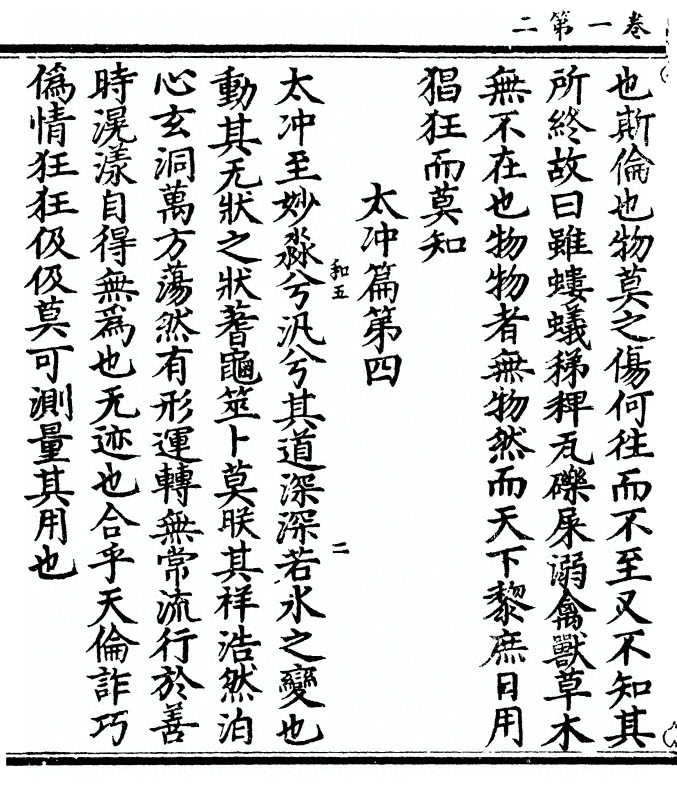 卷一第二
也斯倫也物莫之傷何往而不至又不知其
所終故曰雖螻蟻稊稗瓦礫屎溺禽獸草木
無不在也物物者無物然而天下黎庶日用
猖狂而莫知
太冲篇第四
和五
二
太冲至妙淼兮汎兮其道深深若水之變也
動其无狀之狀蓍龜筮卜莫眹其祥浩然泊
心玄洞萬方蕩然有形運轉無常流行於善
時滉漾自得無為也无迹也合乎天倫詐巧
偽情狂狂伋伋莫可測量其用也